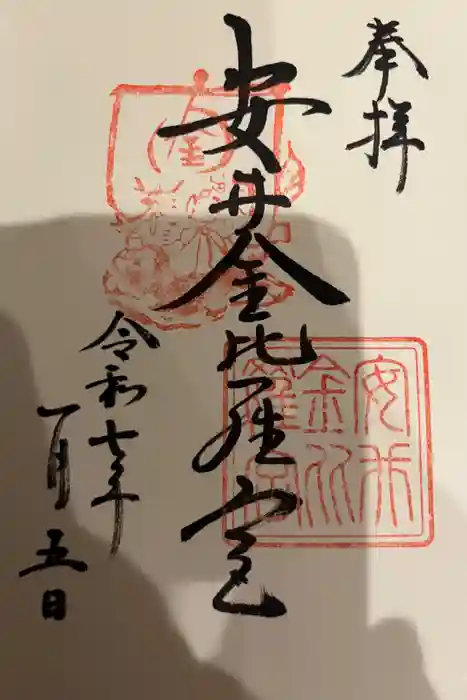 奉拝
安井金比羅宮
令和七年
一月五日
金
安井
金比
羅宮